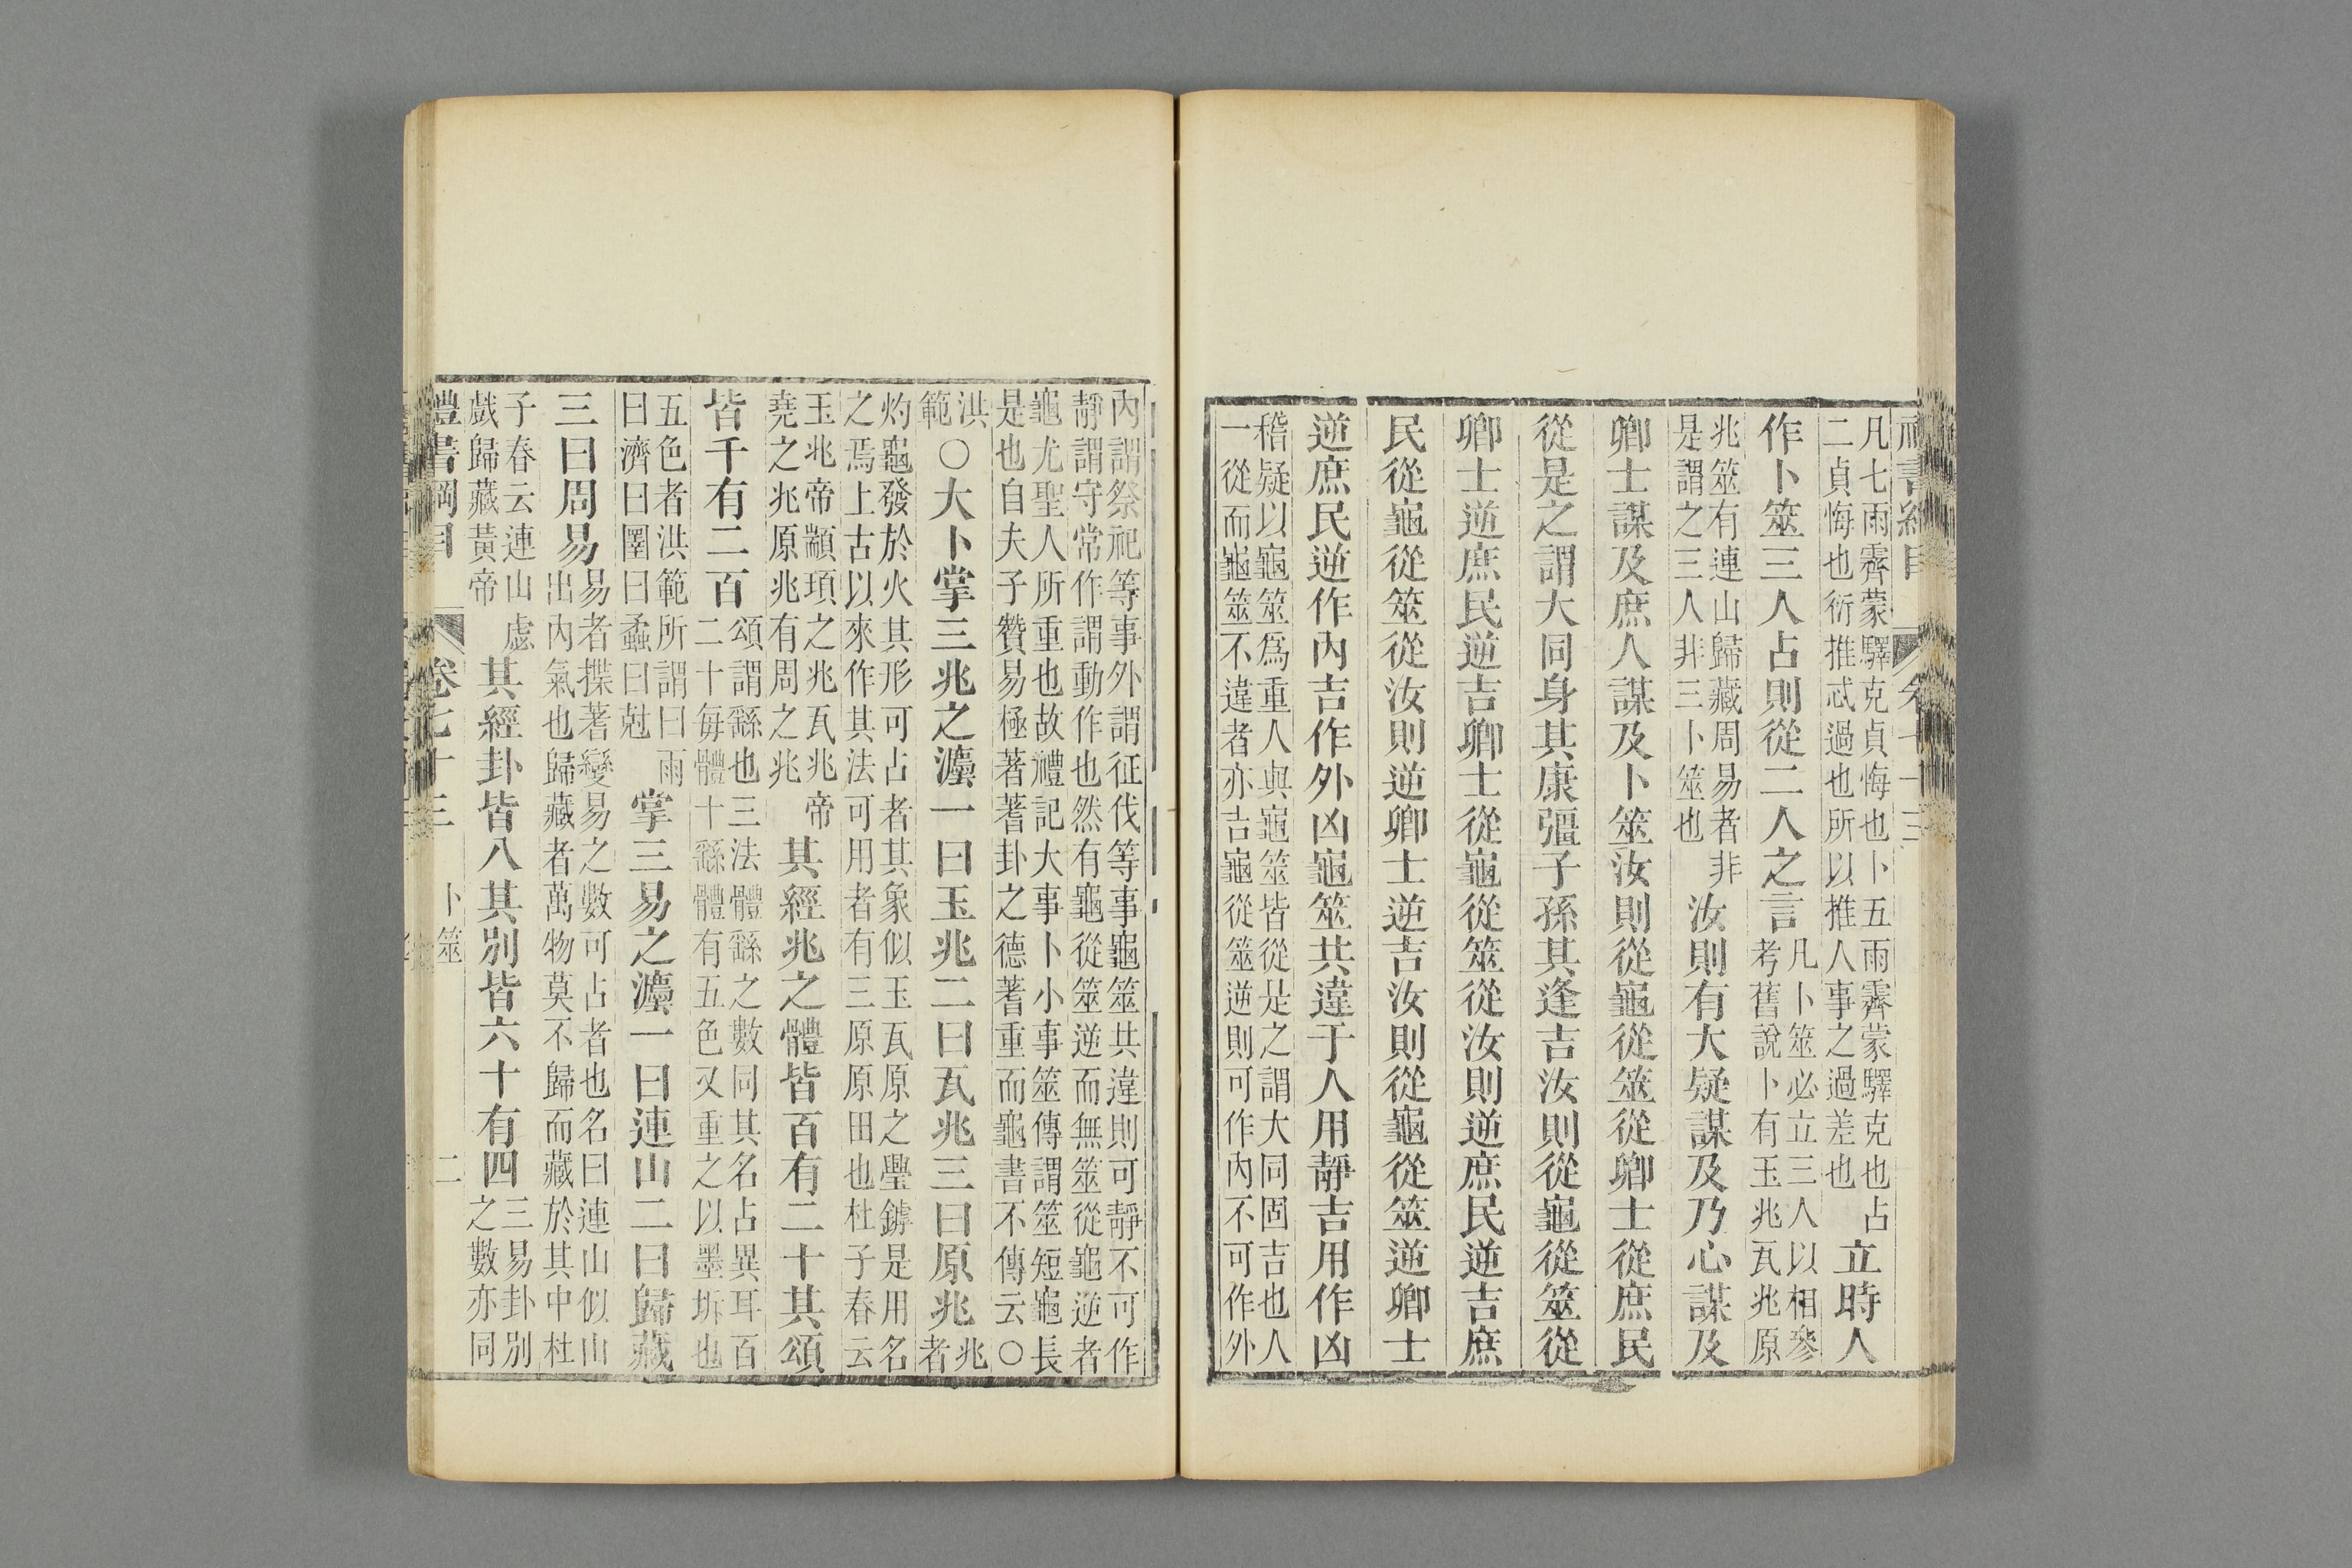 凡七雨霽蒙驛克貞悔也卜五雨霽蒙驛克也占
二貞悔也衍推忒過也所以推人事之過差也
立時人
作卜筮三人占則從二人之言
凡卜筮必立三人以相參
考舊說卜有玉兆瓦兆原
兆筮有連山歸藏周易者非
是謂之三人非三卜筮也
汝則有大疑謀及乃心謀及
卿士謀及庶人謀及卜筮汝則從龜從筮從卿士從庶民
從是之謂大同身其康彊子孫其逢吉汝則從龜從筮從
卿士逆庶民逆吉卿士從龜從筮從汝則逆庶民逆吉庶
民從龜從筮從汝則逆卿士逆吉汝則從龜從筮逆卿士
逆庶民逆作內吉作外凶龜筮共違于人用靜吉用作凶
稽疑以龜筮爲重人與龜筮皆從是之謂大同固吉也人
一從而龜筮不違者亦吉龜從筮逆則可作內不可作外
內謂祭祀等事外謂征伐等事龜筮共違則可靜不可作
靜謂守常作謂動作也然有龜從筮逆而無筮從龜逆者
龜尤聖人所重也故禮記大事卜小事筮傳謂筮短龜長
是也自夫子贊易極著蓍卦之德蓍重而龜書不傳云○
洪
範
○大卜掌三兆之灋一曰玉兆二曰瓦兆三曰原兆
兆
者
灼龜發於火其形可占者其象似玉瓦原之璺鏬是用名
之焉上古以來作其法可用者有三原原田也杜子春云
玉兆帝顓頊之兆瓦兆帝
堯之兆原兆有周之兆
其經兆之體皆百有二十其頌
皆千有二百
頌謂繇也三法體繇之數同其名占異耳百
二十每體十繇體有五色又重之以墨坼也
五色者洪範所謂曰雨
曰濟曰圛曰蟊曰尅
掌三易之灋一曰連山二曰歸藏
三曰周易
易者揲蓍變易之數可占者也名曰連山似山
出內氣也歸藏者萬物莫不歸而藏於其中杜
子春云連山虙
戲歸藏黃帝
其經卦皆八其別皆六十有四
三易卦別
之數亦同
禮書綱目
卷七十三
卜筮
二